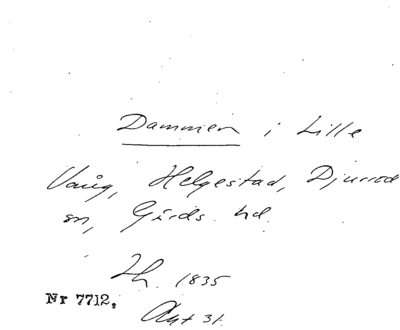 Dammen i Lille
Vång, Helgestad, Djurröd
sn, Gärds hd.
Th. 1835
Nr 7712.
Akt 31.